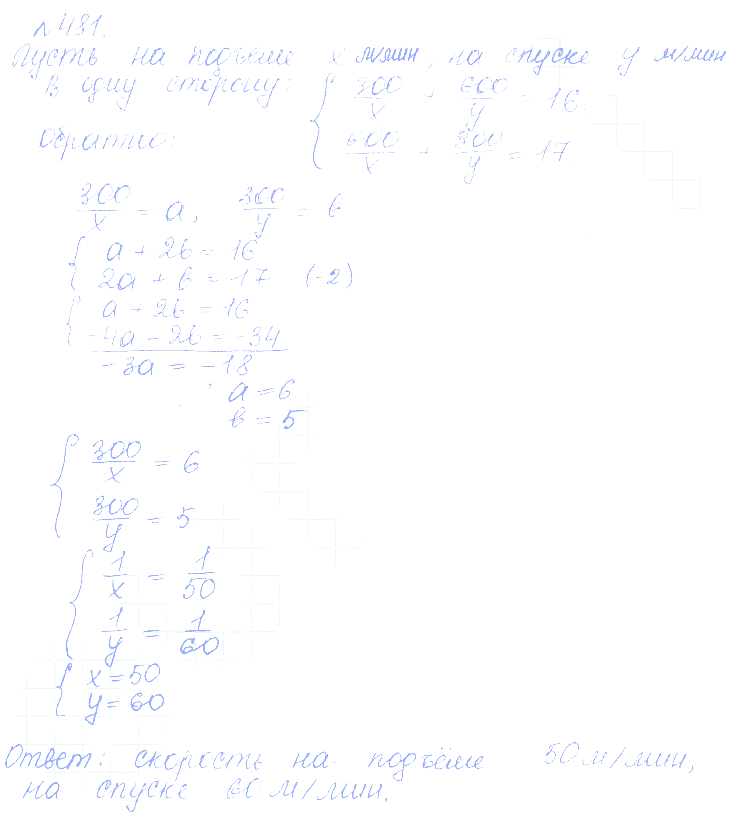 №481.
Пусть на подъёме x м/мин, на спуске y м/мин
В одну сторону: { 300/x + 600/y = 16.
Обратно: 600/x + 300/y = 17
300/x = a, 300/y = b
{ a + 2b = 16
2a + b = 17 (-2)
{ a + 2b = 16
-4a - 2b = -34
-3a = -18
a = 6
b = 5
{ 300/x = 6
300/y = 5
{ 1/x = 1/50
1/y = 1/60
{ x = 50
y = 60
Ответ: скорость на подъёме 50 м/мин,
на спуске 60 м/мин.